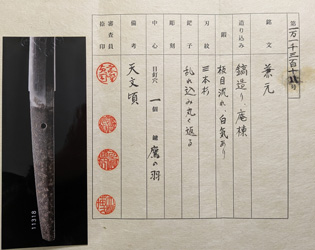 第一万一千三百十八号
銘文 兼元
造り込み 鎬造り、庵棟
鍛 板目流れ、白気あり
刃文 三本杉
鋩子 乱れ込み丸く返る
彫刻
中心 目釘穴 一個 鑢 鷹の羽
備考 天文頃
審査員
捺印
11318